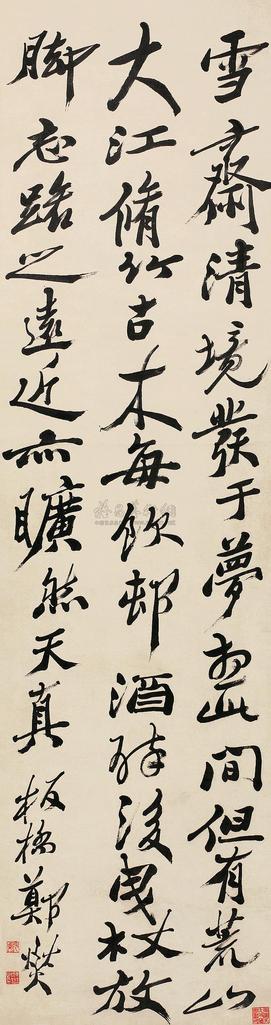 雪齋清境發于夢想此間但有荒山
大江脩竹古木每飲邨酒醉後曳杖放
脚不知路之遠近亦曠然天真 板橋鄭燮